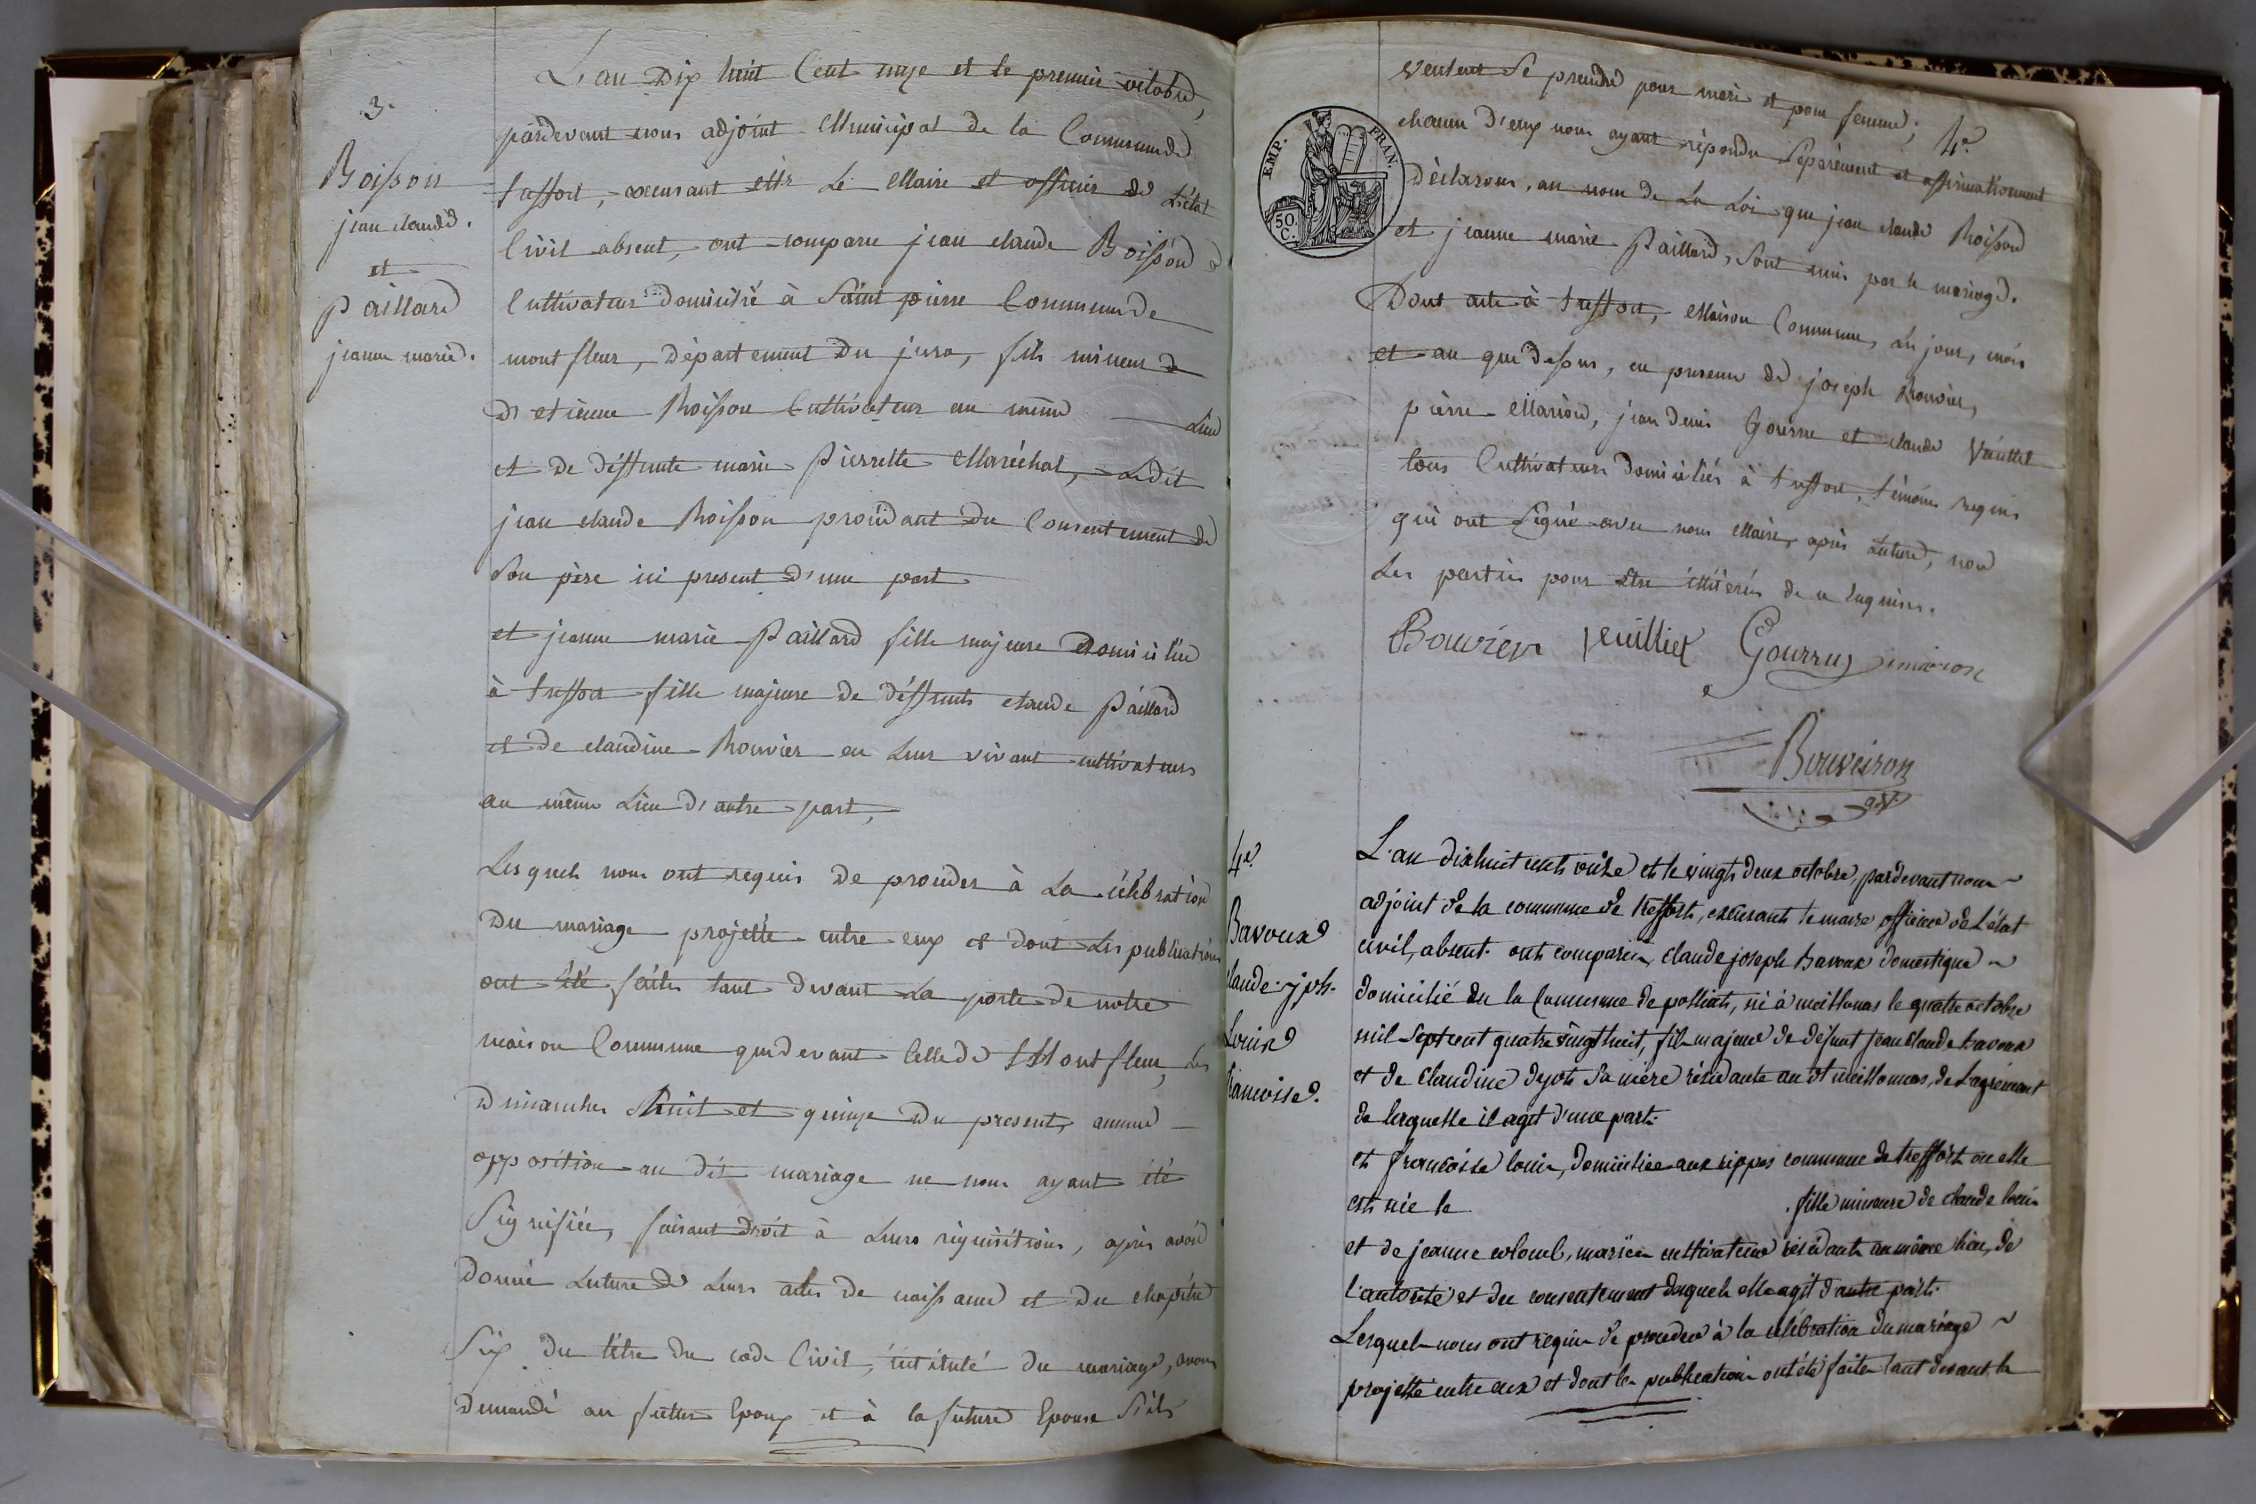 3.
Boisson
jean claude.
et
Paillard
jeanne marie.
L'an Dix huit Cent onze et le premier octobre,
pardevant nous adjoint Municipal de la Commune de
treffort, excusant Mr Le Maire et officier de L'état
Civil absent, ont comparu jean claude Boisson
Cultivateur domicilié à Saint pierre Commune de
montfleur, Département Du jura, fils mineur
d'etienne Boisson Cultivateur au même Lieu
et de déffunte marie Pierrette Maréchal, Ledit
jean claude Boisson procédant Du Consentement de
Son père ici present d'une part
et jeanne marie Paillard fille majeure Domiciliée
à treffort fille majeure de déffunts claude Paillard
et de claudine Bouvier en Leur vivant cultivateurs
au même Lieu d'autre part,
Lesquels nous ont requis De proceder à La célébration
Du mariage projetté entre eux et dont Les publications
ont été faites tant devant La porte de notre
maison Commune que devant Celle de Montfleur, Les
Dimanches huit et quinze Du present, aucune
opposition au dit mariage ne nous ayant été
Signifiée, faisant droit à Leurs réquisitions, après avoir
donné Lecture de Leurs actes de naissance et Du chapitre
Six du titre du code Civil, intitulé du mariage, avons
demandé au futur Epoux et à la future Epouse S'ils
4e.
veulent Se prendre pour mari et pour femme;
chacun d'eux nous ayant répondu Séparément et affirmativement
Déclarons, au nom de La Loi que jean claude Boisson
et jeanne marie Paillard, Sont unis par le mariage.
Dont acte à treffort, Maison Commune, Les jour, mois
et an que dessus, en presence de joseph Bouvier,
pierre Marion, jean denis Gourru et claude Vuillet
tous Cultivateurs domiciliés à treffort, témoins requis
qui ont Signé avec nous Maire, après Lecture, non
Les parties pour être illiterées de ce enquises.
EMP. FRAN.
50. C.
Bouvier vuillet Gourru marion
Bouveiron
adj.
4e.
Bavoux
claude jph.
Louis
francoise.
L'an dixhuit cents onze et le vingt deux octobre, pardevant nous
adjoint de la commune de treffort, excusant le maire officier de L'état
civil, absent. ont comparu, claude joseph bavoux domestique
domicilié dans la Commune de polliat, né à meillonas le quatre octobre
mil Sept cent quatre vingt huit, fils majeur de défunt jean Claude bavoux
et de Claudine dyot Sa mère résidante au dt meillonnas, de L'agrément
de laquelle il agit d'une part.
et francoise louis, domiciliée aux rippes commune de treffort où elle
est née le . fille mineure de claude louis
et de jeanne coloud, mariés cultivateurs résidants au même lieu, de
l'autorité et du consentement desquels elle agit d'autre part.
Lesquels nous ont requis de proceder à la célébration du mariage
projetté entre eux et dont les publications ont été faites tant devant la